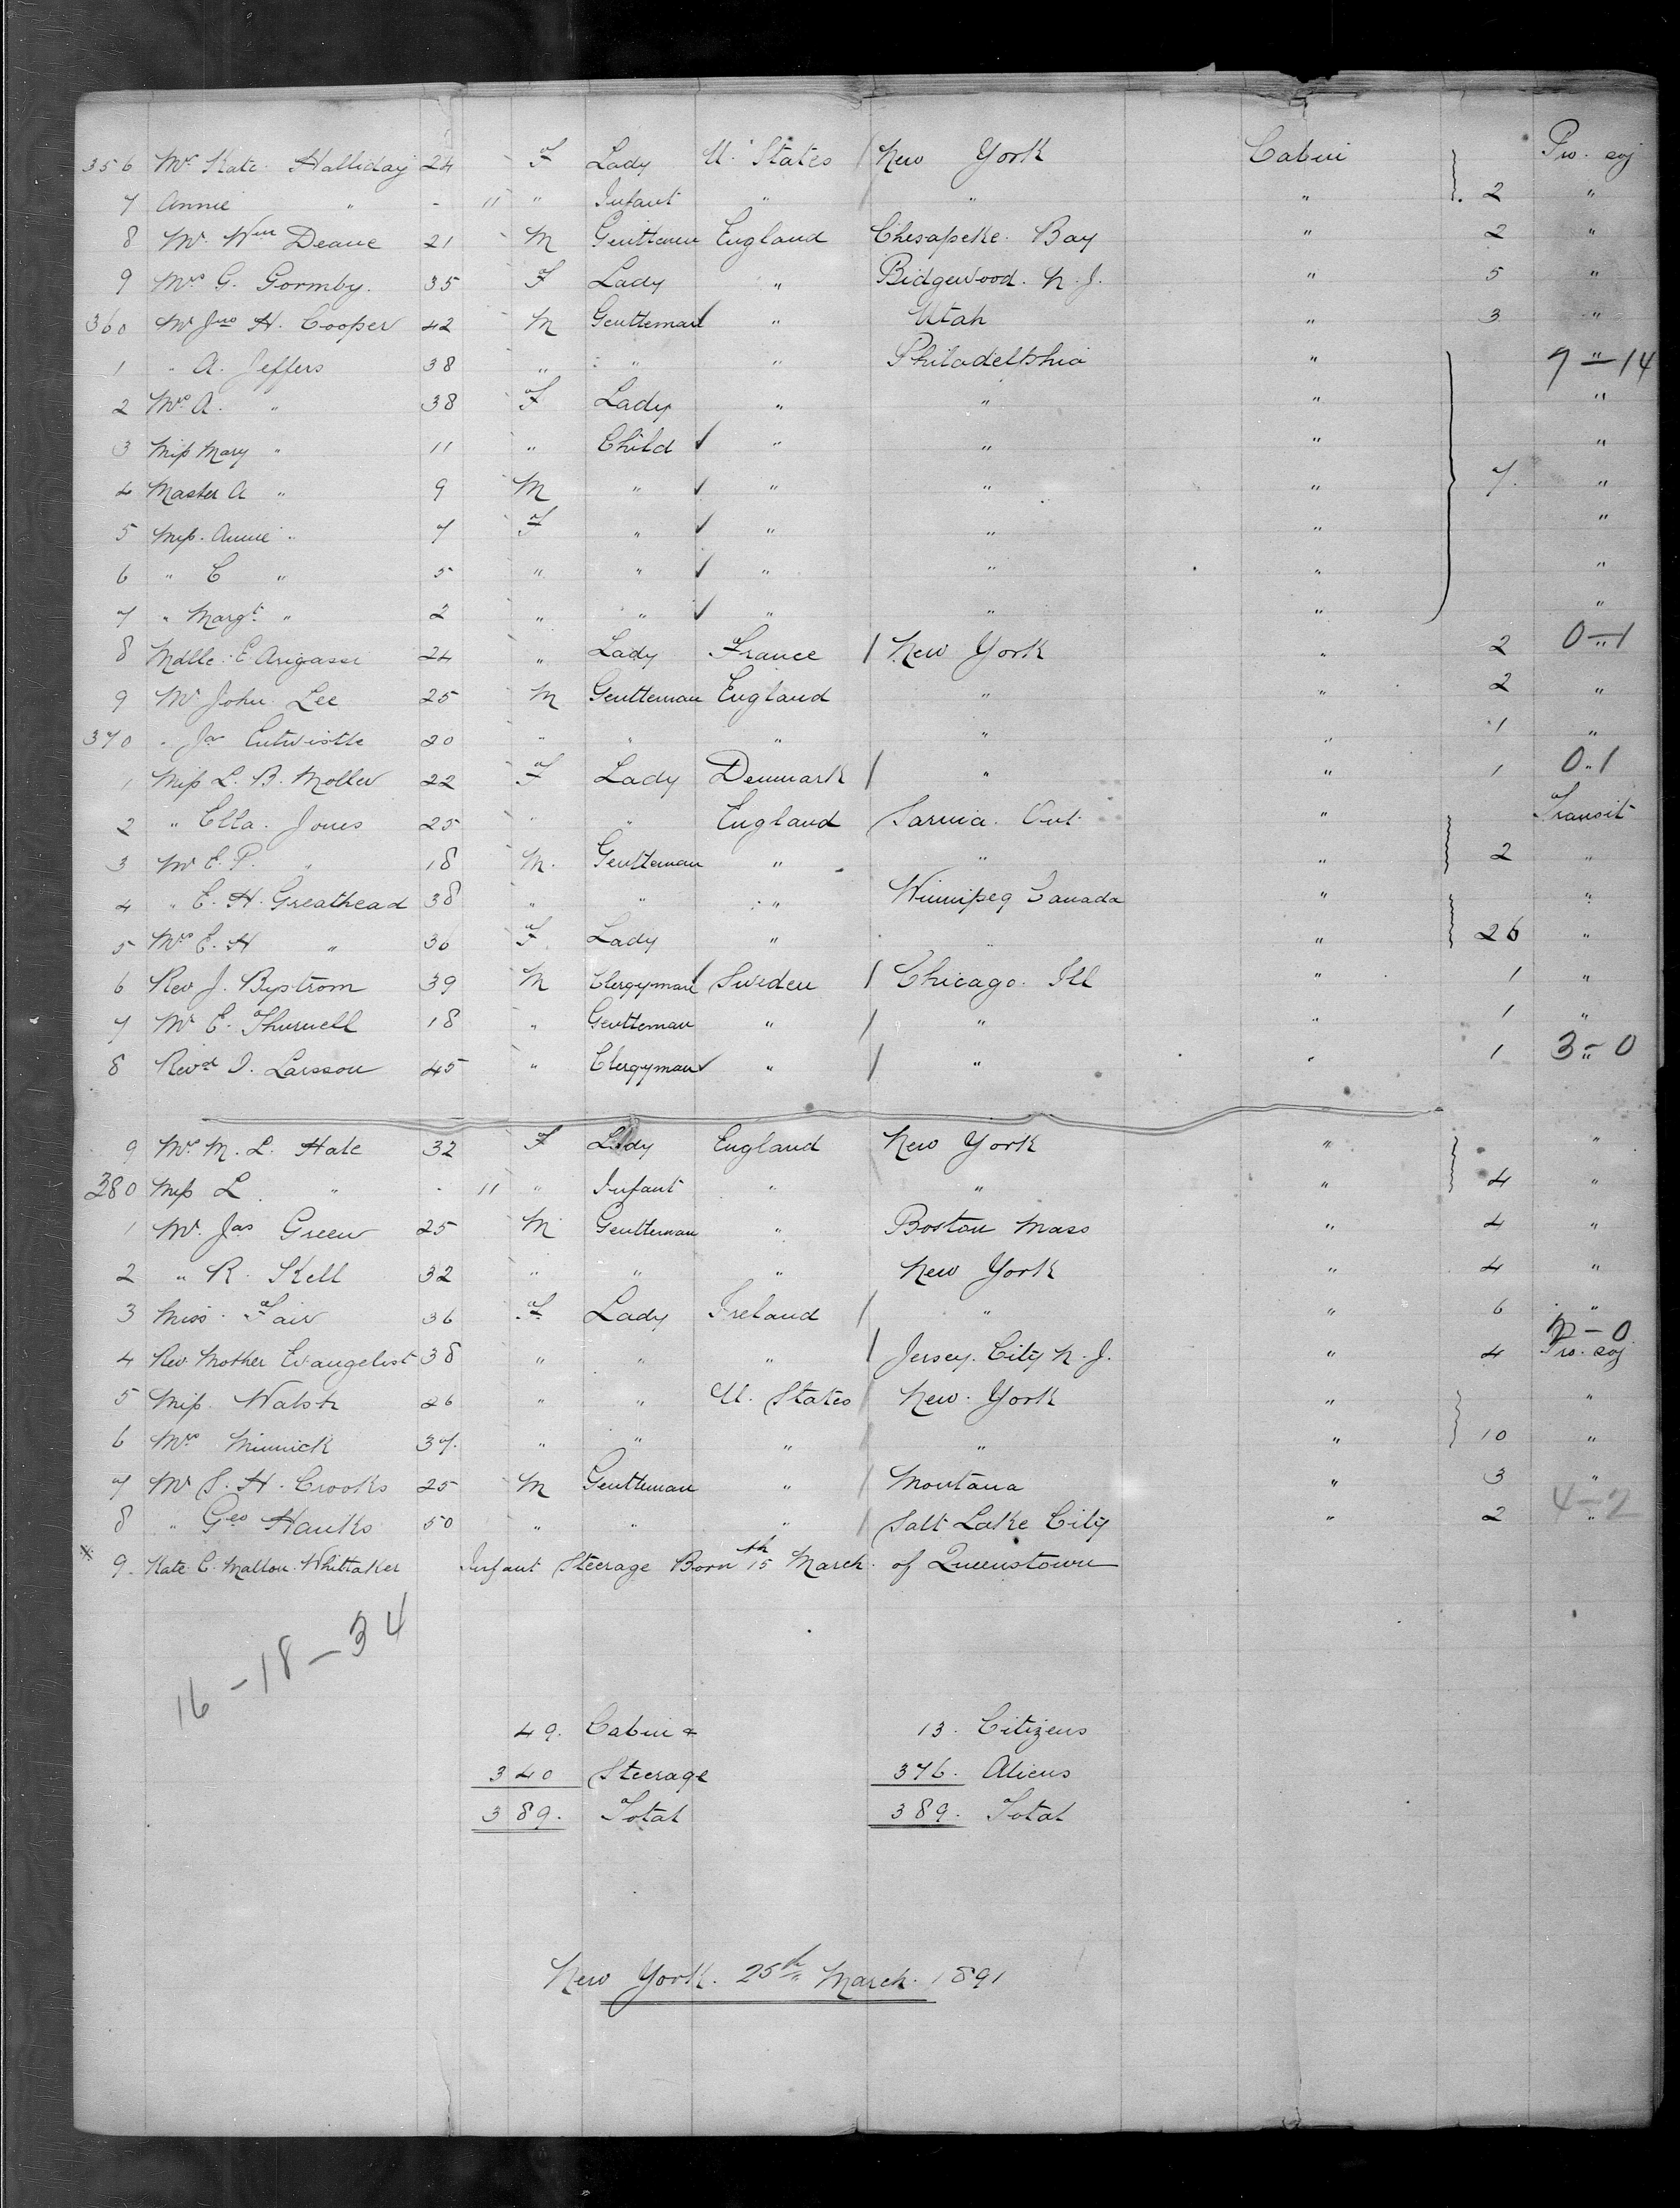 356 Mrs Kate Halliday 24 F Lady U. States / New York Cabin Pro. soj
7 Annie " - 11 " Infant " / " " 2 "
8 Mr. Wm Deane 21 M Gentleman England Chesapeke Bay " 2 "
9 Mrs G. Gormby. 35 F Lady " Bidgewood. N. J. " 5 "
360 Mr Jno H. Cooper 42 M Gentleman " Utah " 3 "
1 " A. Jeffers 38 " " " Philadelphia " 7 - 14
2 Mrs A. " 38 F Lady " " " "
3 Miss Mary " 11 " Child ✓ " " " "
4 Master A " 9 M " ✓ " " " 7. "
5 Miss. Annie " 7 F " ✓ " " " "
6 " C " 5 " " ✓ " " " "
7 " Margt " 2 " " ✓ " " " "
8 Mdlle. E 24 " Lady France / New York " 2 0-1
9 Mr John Lee 25 M Gentleman England " " 2 "
370 " Jas Entwistle 20 " " " " " 1 "
1 Miss L. B. Moller 22 F Lady Denmark / " " 1 0.1
2 " Ella. Jones 25 " " England Sarnia. Ont. " Transit
3 Mr E. P. " 18 M. Gentleman " " " 2 "
4 " E. H. Greathead 38 " " " Winnipeg Canada " "
5 Mrs E. H " 36 F Lady " " " 26 "
6 Rev J. Bystrom 39 M Clergyman ✓ Sweden / Chicago. Ill " 1 "
7 Mr E. Thurnell 18 " Gentleman " / " " 1 "
8 Revd I. Larsson 45 " Clergyman ✓ " / " " 1 3 - 0
9 Mrs M. L. Hale 32 F Lady England New York " "
380 Miss L. " - 11 " Infant " " " 4 "
1 Mr. Jas Green 25 M Gentleman " Boston Mass " 4 "
2 " R. Skell 32 " " " New York " 4 "
3 Miss. Fair 36 F Lady Ireland / " " 6 "
2 - 0
4 Rev Mother Evangelist 38 " " " / Jersey. City N. J. " 4 Pro. soj
5 Miss. Walsh 26 " " U. States / New. York " "
6 Mrs Minnick 37. " " " / " " 10 "
7 Mr S. H. Crooks 25 M Gentleman " / Montana " 3 "
4-2
8 " Geo Hanks 50 " " " / Salt Lake City " 2 "
9. Kate C. Mallon. Whittaker Infant Steerage Born 15th March. of Queenstown
16 - 18 - 34
49. Cabin & 13. Citizens
340 Steerage 376. Aliens
389. Total 389. Total
New York. 25th March. 1891